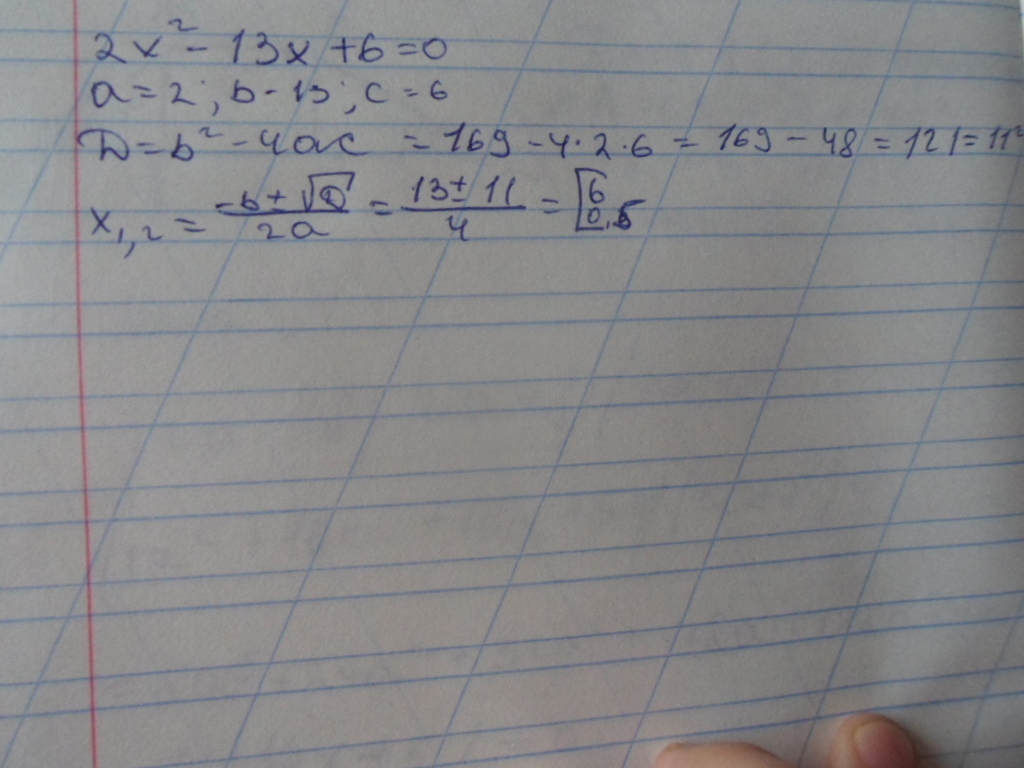 2x² - 13x + 6 = 0
a = 2; b - 13; c = 6
D = b² - 4ac = 169 - 4·2·6 = 169 - 48 = 121 = 11²
x₁,₂ = (-b ± √D)/(2a) = (13 ± 11)/4 = [6 0,5